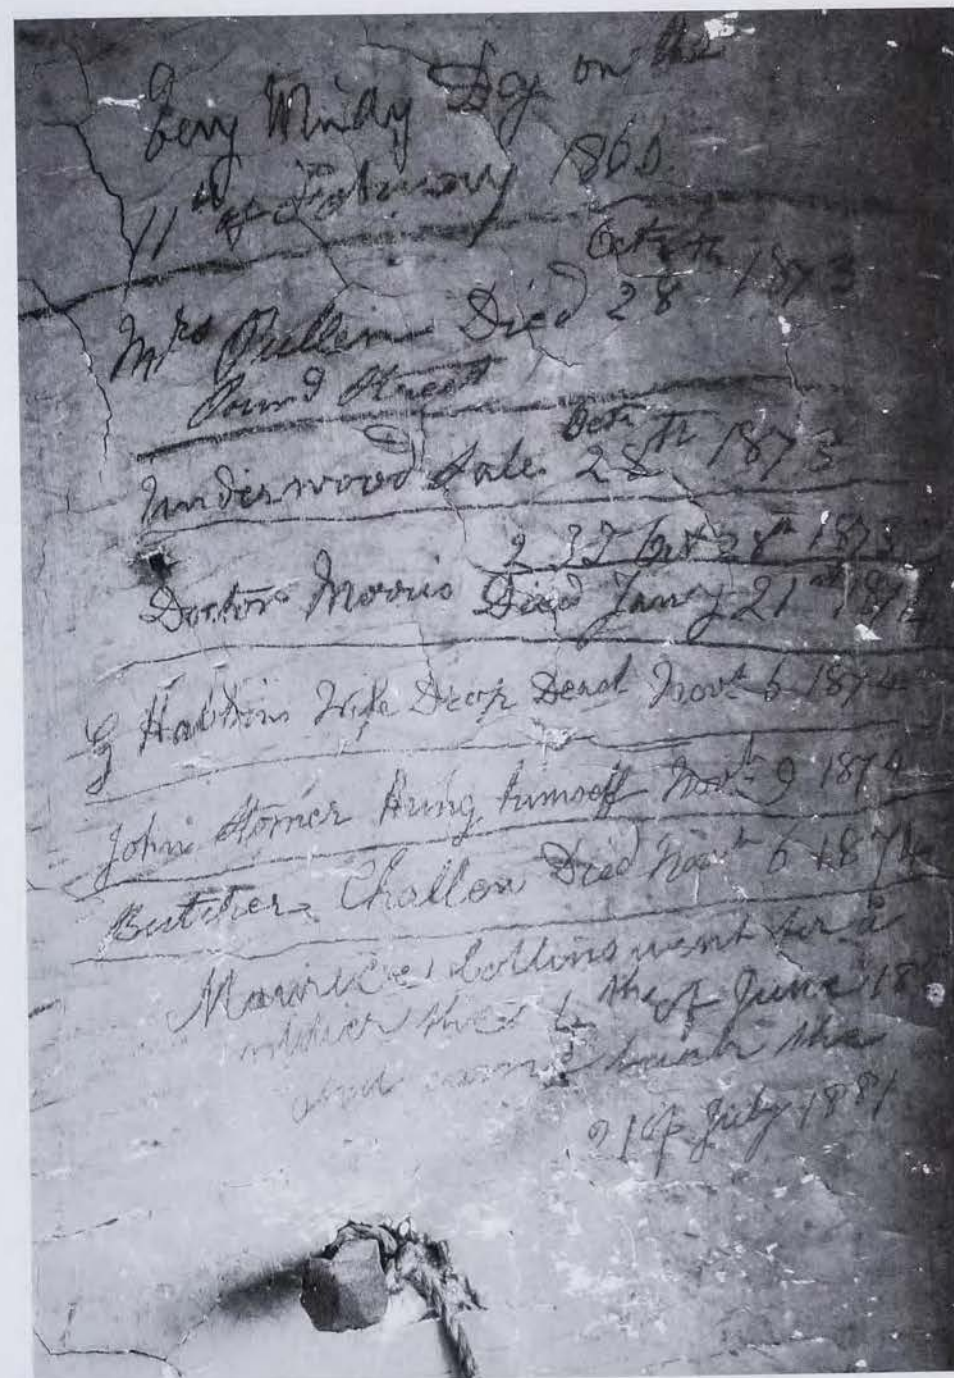 A
Very Windy Day on the
11th of February 1866.
Mrs Pullen Died Octr 28th 1873
Pound Street
Underwood Sale Octr 28th 1873
Octr 28th 1873
Doctor Morris Died Jany 21st 1874
G Wife Drop Dead Novr 6 1874
John Homer Hung himself Novr 9 1874
Butcher Challen Died Novr 6 1874
Maurice Collins went for a
the 4 of June 18
and came back the
21 of July 1881